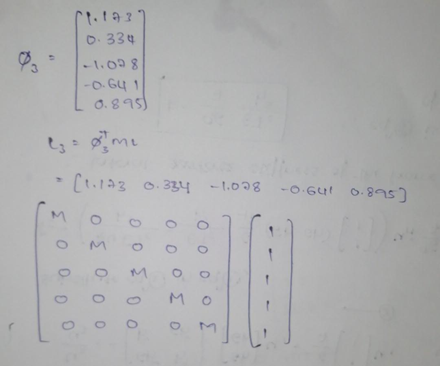 φ₃ = [1.173
0.334
-1.028
-0.641
0.895]
L₃ = φ₃ᵀ M L
= [1.173 0.334 -1.028 -0.641 0.895]
[M 0 0 0 0] [1
0 M 0 0 0 1
0 0 M 0 0 1
0 0 0 M 0 1
0 0 0 0 M] 1]